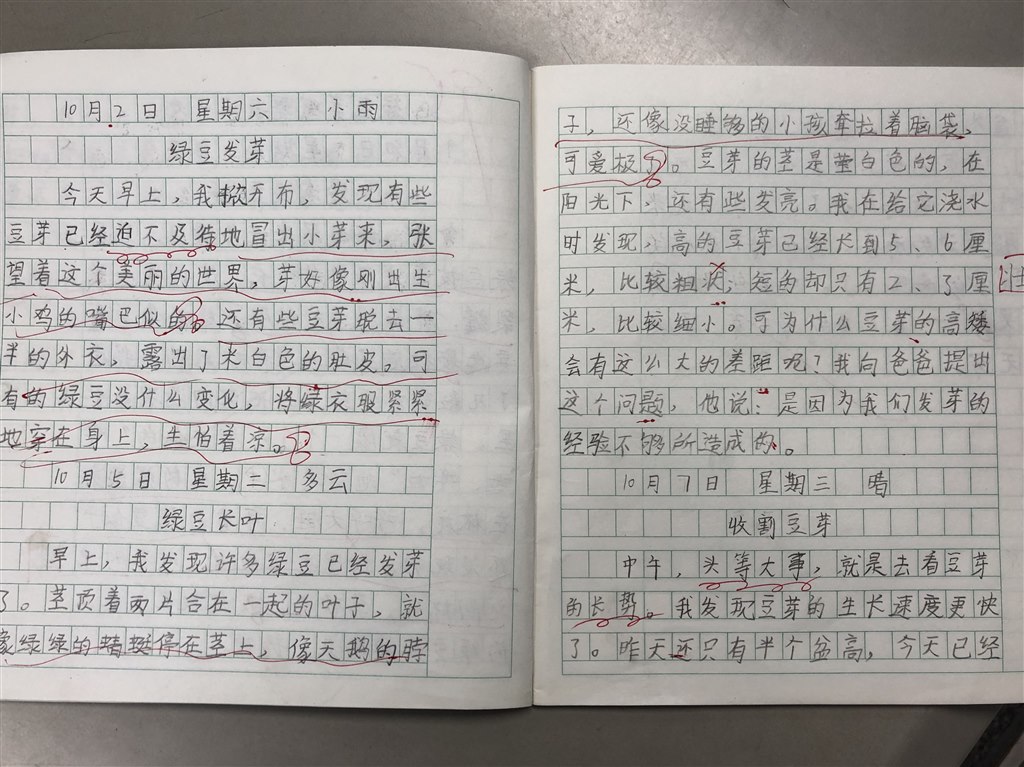 10月2日 星期六 小雨
绿豆发芽
今天早上，我掀开布，发现有些
豆芽已经迫不及待地冒出小芽来，张
望着这个美丽的世界，芽好像刚出生
小鸡的嘴巴似的。还有些豆芽脱去一
半的外衣，露出了米白色的肚皮。可
有的绿豆没什么变化，将绿衣服紧紧
地穿在身上，生怕着凉。
10月5日 星期二 多云
绿豆长叶
早上，我发现许多绿豆已经发芽
了。茎顶着两片合在一起的叶子，就
像绿绿的蜻蜓停在茎上，像天鹅的脖
子，还像没睡够的小孩牵拉着脑袋，
可爱极了。豆芽的茎是莹白色的，在
阳光下，还有些发亮。我在给它浇水
时发现，高的豆芽已经长到5、6厘
米，比较粗；短的却只有2、了厘
米，比较细小。可为什么豆芽的高矮
会有这么大的差距呢？我向爸爸提出
这个问题，他说：是因为我们发芽的
经验不够所造成的。
10月7日 星期三 晴
收割豆芽
中午，头等大事，就是去看豆芽
的长势。我发现豆芽的生长速度更快
了。昨天还只有半个盆高，今天已经